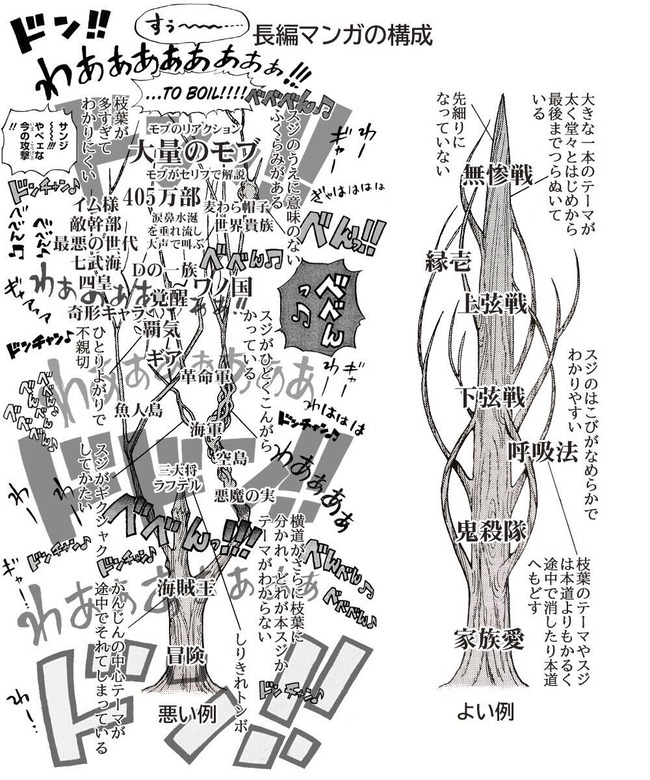 長編マンガの構成
ドン!!
すぅ〜〜〜…
わあああああああぁぁ!!!
...TO BOIL!!!!
べべべん♪
サンジ
〜〜〜!!
やべェな
今の攻撃
!!
枝葉が
多すぎて
わかりにくい
モブのリアクション
大量のモブ
モブがセリフで解説
スジのうえに意味のない
ふくらみがある
ぎゃー
わー
ぎゃはははは
405万部
涙鼻水涎
を垂れ流し
大声で叫ぶ
麦わら帽子
世界貴族
イム様
敵幹部
最悪の世代
七武海
四皇
奇形キャラ
Dの一族
覚醒
覇気
ギア
ワノ国
ドンチャン♪
べんっ!!
べべん♪
べべん♪
わあぁぁぁぁ
ギャアアア
ひとりよがりで
不親切
スジがひどくこんがら
かっている
革命軍
魚人島
海軍
空島
悪魔の実
三大将
ラフテル
わははは
ドンチャン♪
わあぁぁぁ
ドドン!!
スジがギクシャク
してかたい
べべんっ!!!
横道がさらに枝葉に
分かれ、どれが本スジか
テーマがわからない
べんべん♪
べべべん♪
海賊王
冒険
かんじんの中心テーマが
途中でそれてしまっている
しりきれトンボ
ドンチャン♪
ドン!!
悪い例
先細りに
なっていない
大きな一本のテーマが
太く堂々とはじめから
最後までつらぬいて
いる
無惨戦
縁壱
上弦戦
下弦戦
スジのはこびがなめらかで
わかりやすい
呼吸法
鬼殺隊
枝葉のテーマやスジ
は本道よりもかるく
途中で消したり本道
へもどす
家族愛
よい例